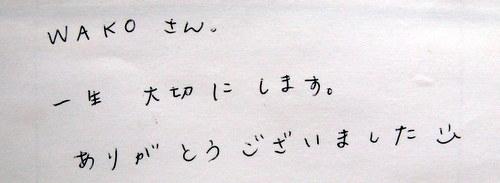 WAKO さん。
一生 大切にします。
ありがとうございました